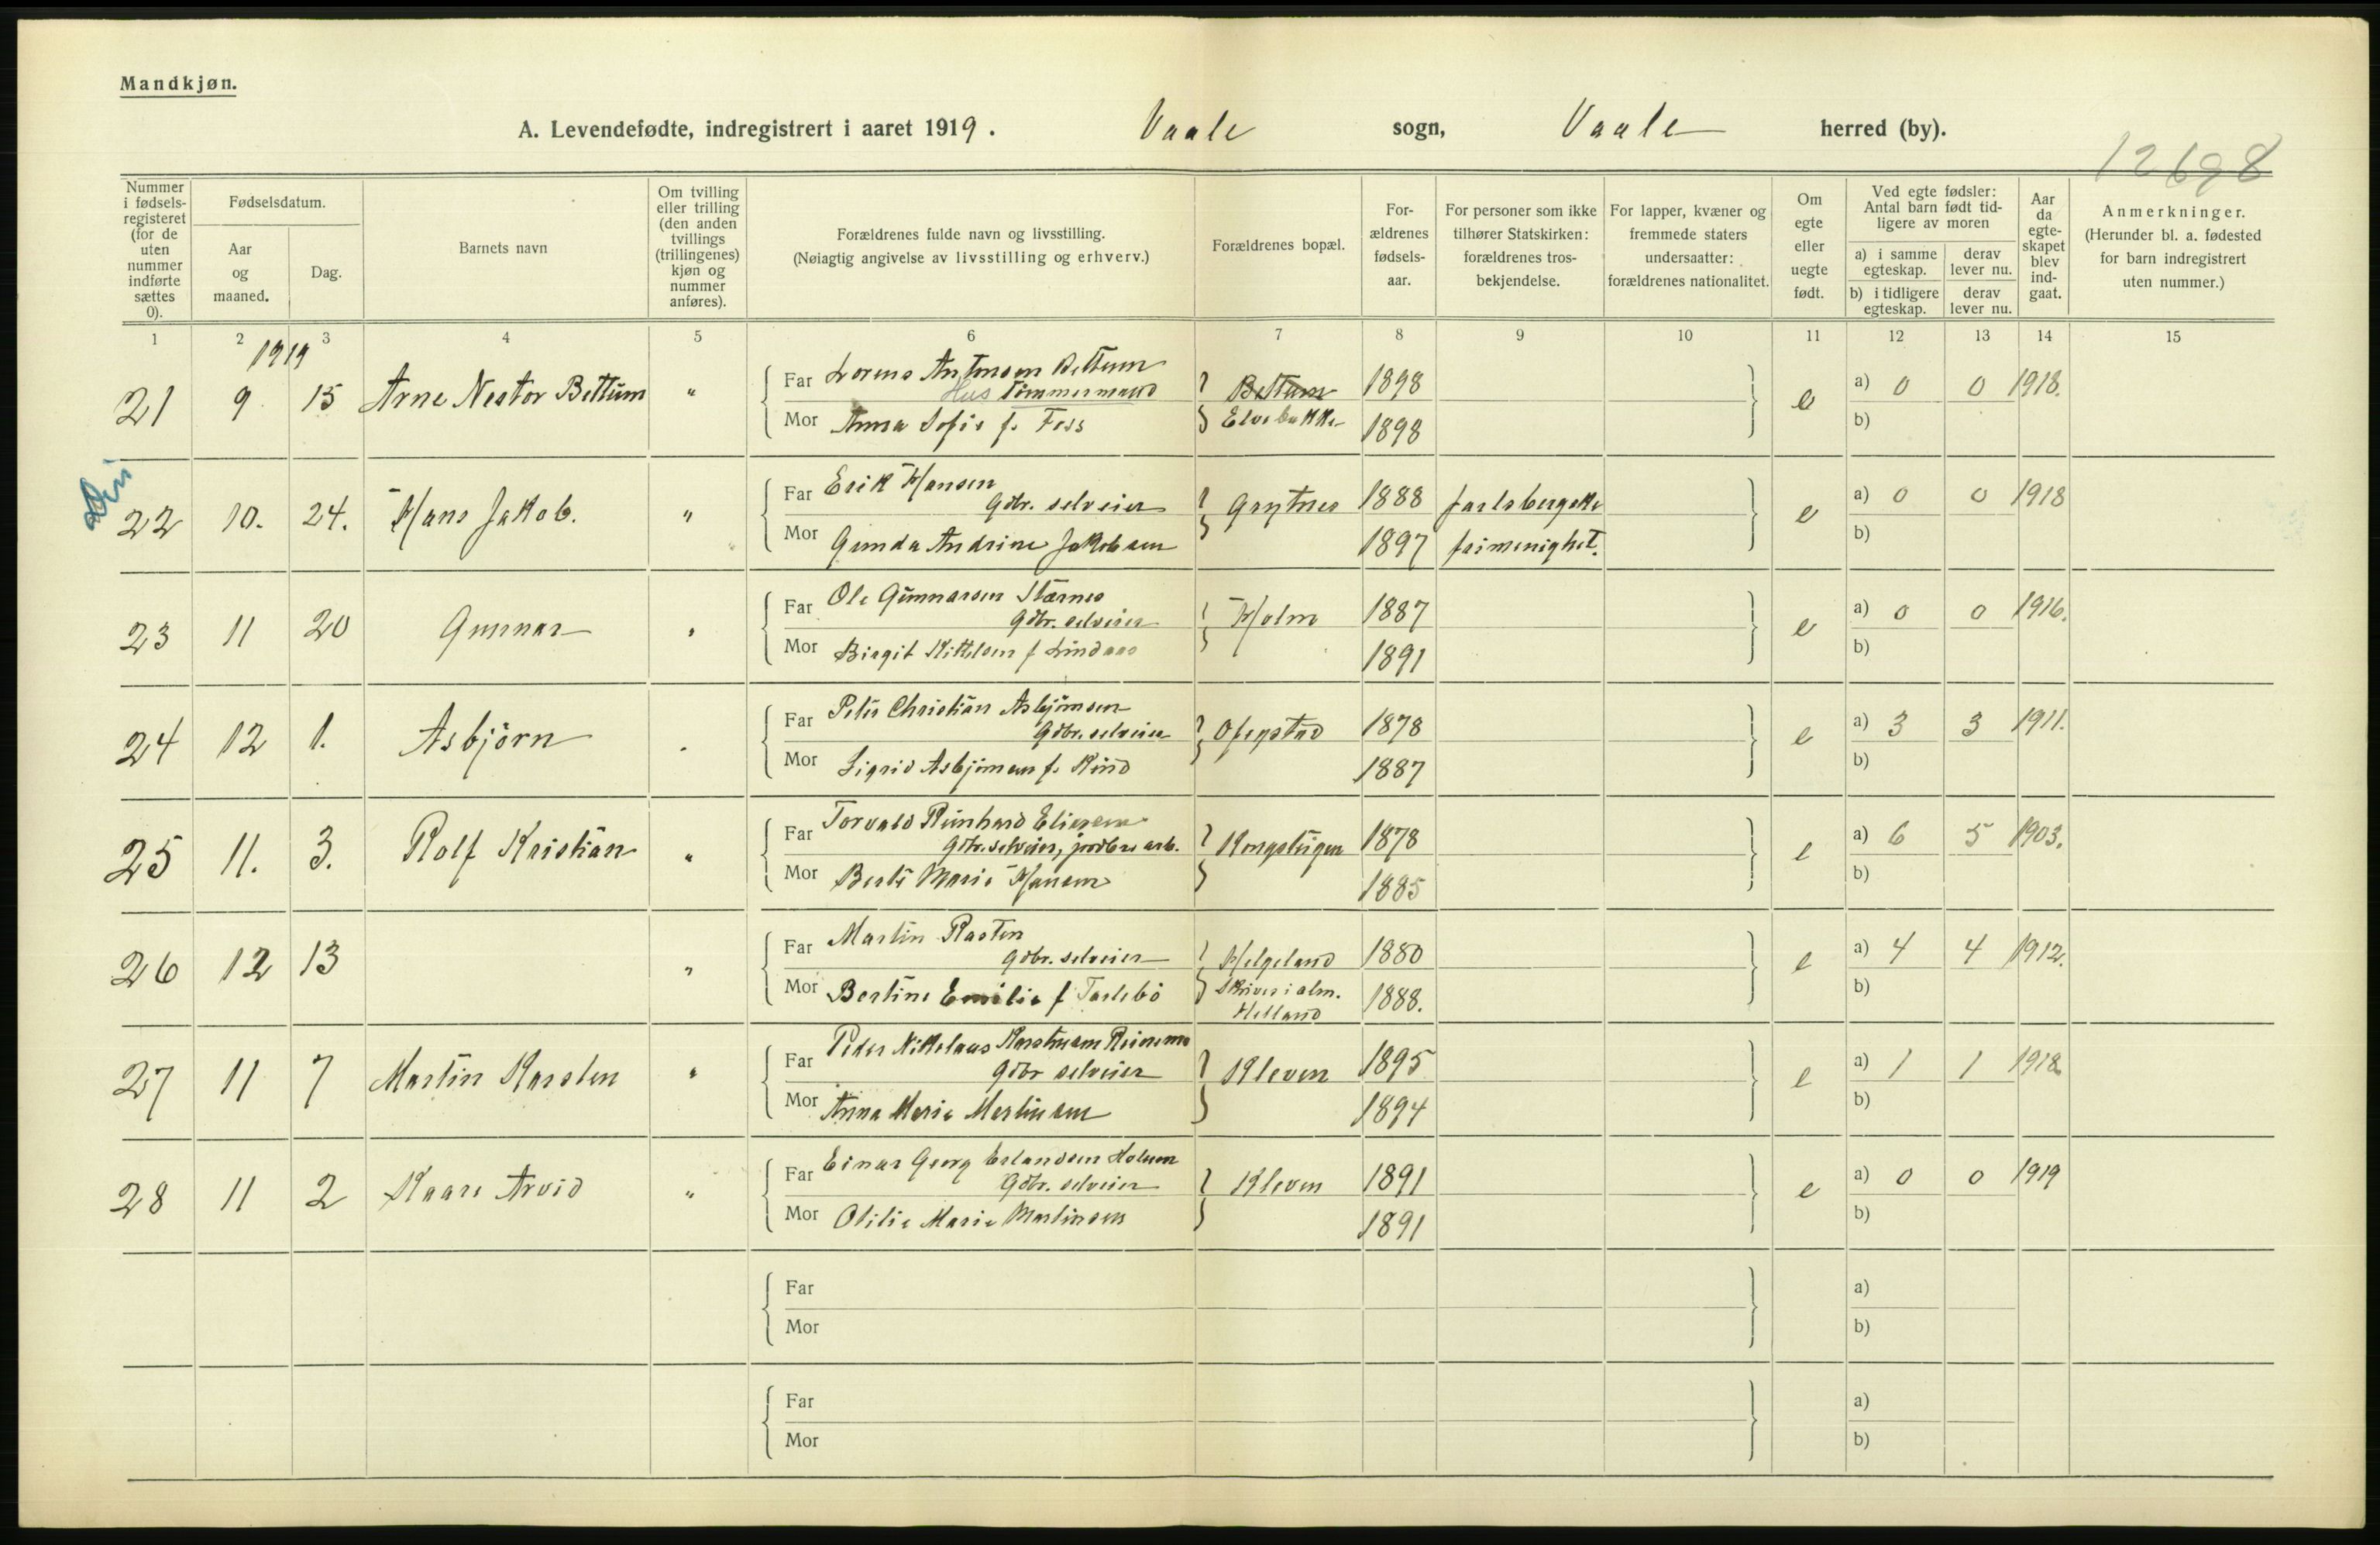 Mandkjøn.
A. Levendefødte, indregistrert i aaret 1919. Vaale sogn, Vaale herred (by).
12698
Nummer i fødselsregisteret (for de uten nummer indførte sættes 0).
Fødselsdatum.
Aar og maaned.
Dag.
Barnets navn
Om tvilling eller trilling (den anden tvillings (trillingenes) kjøn og nummer anføres).
Forældrenes fulde navn og livsstilling.
(Nøiagtig angivelse av livsstilling og erhverv.)
Forældrenes bopæl.
Forældrenes fødselsaar.
For personer som ikke tilhører Statskirken: forældrenes trosbekjendelse.
For lapper, kvæner og fremmede staters undersaatter: forældrenes nationalitet.
Om egte eller uegte født.
Ved egte fødsler: Antal barn født tidligere av moren
a) i samme egteskap.
derav lever nu.
b) i tidligere egteskap.
derav lever nu.
Aar da egteskapet blev indgaat.
Anmerkninger.
(Herunder bl. a. fødested for barn indregistrert uten nummer.)
1 2 3 4 5 6 7 8 9 10 11 12 13 14 15
1919
21 9 15 Arne Nestor Bettum " Far Lorens Antonsen Bettum
Hus Tømmermand Bettum 1898 e a) 0 0 1918.
Mor Anna Sofie f. Foss Elvebakke 1898 b)
22 10. 24. Hans Jakob. " Far Erik Hansen
Gdbr. selveier Grytnes 1888 Jarlsbergske e a) 0 0 1918
Mor Gunda Andrine Jakobsen 1897 frimenighet. b)
23 11 20 Gunnar " Far Ole Gunnarsen Stærnes
Gdbr. selveier Holm 1887 e a) 0 0 1916.
Mor Birgit Kittelsen f Lindaas 1891 b)
24 12 1. Asbjørn " Far Peter Christian Asbjørnsen
Gdbr. selveier 1878 e a) 3 3 1911.
Mor Sigrid Asbjørnsen f. 1887 b)
25 11. 3. Rolf Kristian " Far Torvald Reinhard Eliesen
Gdbr. selveier, arb. 1878 e a) 6 5 1903.
Mor Marie Hansen 1885 b)
26 12 13 " Far Martin Rasten
Gdbr. selveier Helgeland 1880 e a) 4 4 1912.
Mor Bertine Emilie f Skriver i alm. 1888. b)
Helland
27 11 7 Martin Karsten " Far Peder Nikolaus
Gdbr selveier Kleven 1895 e a) 1 1 1918
Mor Anna Marie Martinsen 1894 b)
28 11 2 Kaare Arvid " Far Einar Georg Erlandsen Holum
Gdbr. selveier Kleven 1891 e a) 0 0 1919
Mor Otilie Marie Martinsen 1891 b)
Far a)
Mor b)
Far a)
Mor b)